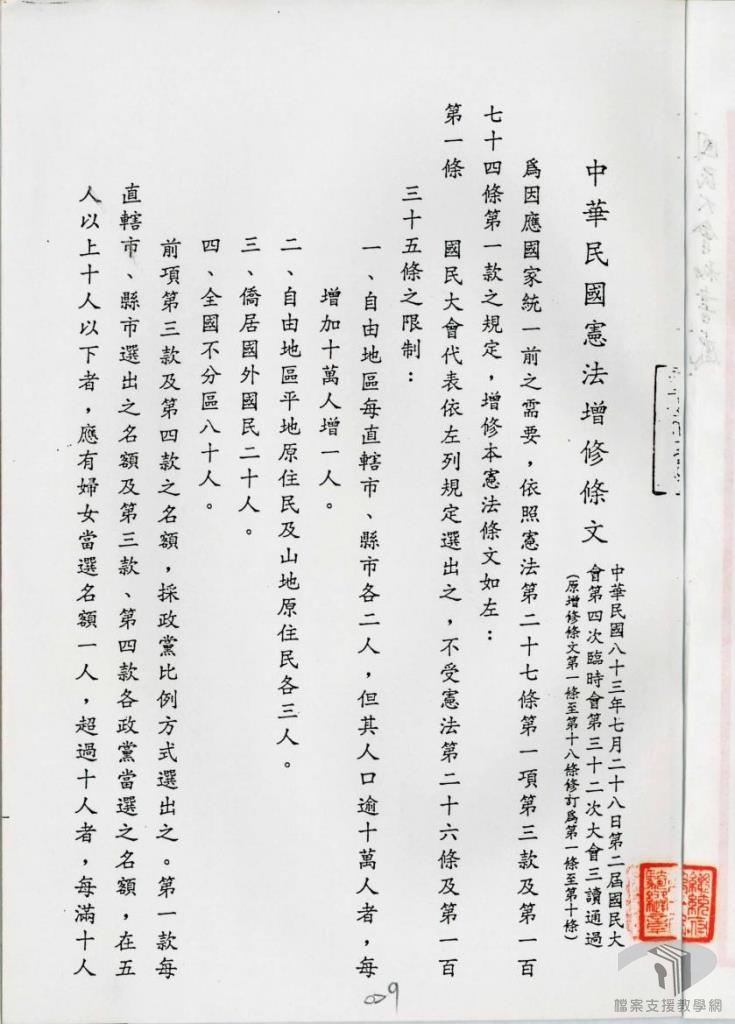 中華民國憲法增修條文
中華民國八十三年七月二十八日第二屆國民大
會第四次臨時會第三十二次大會三讀通過
(原增修條文第一條至第十八條修訂爲第一條至第十條)
爲因應國家統一前之需要，依照憲法第二十七條第一項第三款及第一百
七十四條第一款之規定，增修本憲法條文如左：
第一條　國民大會代表依左列規定選出之，不受憲法第二十六條及第一百
三十五條之限制：
一、自由地區每直轄市、縣市各二人，但其人口逾十萬人者，每
增加十萬人增一人。
二、自由地區平地原住民及山地原住民各三人。
三、僑居國外國民二十人。
四、全國不分區八十人。
前項第三款及第四款之名額，採政黨比例方式選出之。第一款每
直轄市、縣市選出之名額及第三款、第四款各政黨當選之名額，在五
人以上十人以下者，應有婦女當選名額一人，超過十人者，每滿十人
009
檔案支援教學網